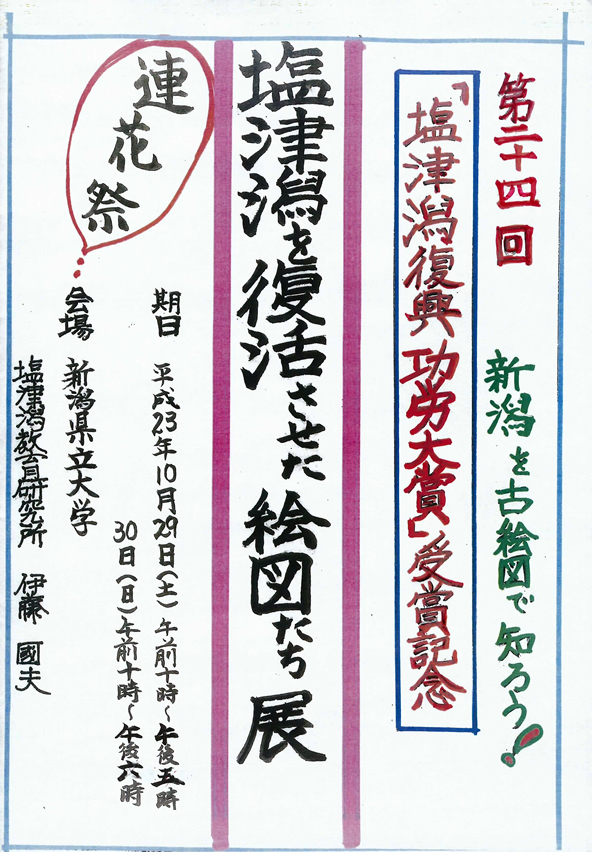 第二十四回
新潟を古絵図で知ろう!
「塩津潟復興功労大賞」受賞記念
塩津潟を復活させた絵図たち展
連花祭
期日 平成23年10月29日(土)午前十時~午後五時
30日(日)午前十時~午後六時
会場 新潟県立大学
塩津潟教育研究所 伊藤 國夫